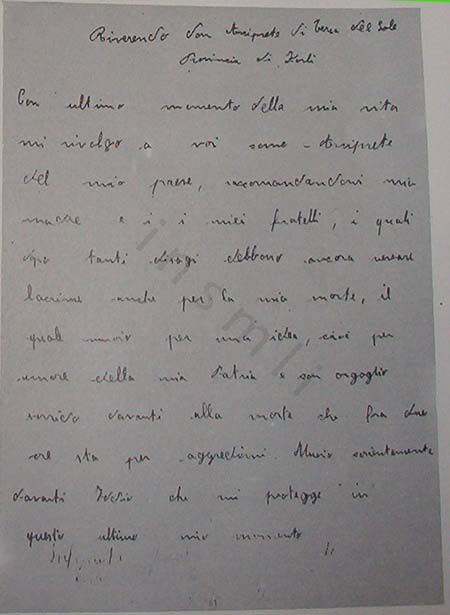 Riverendo don Arciprete di Terra del Sole
Provincia di Forlì
Con ultimo momento della mia vita
mi rivolgo a voi come Arciprete
del mio paese, racomandandomi mia
madre e i i miei fratelli, i quali
dopo tanti disagi debbono ancora versare
lacrime anche per la mia morte, il
quale muoio per una idea, cioè per
amore della mia Patria e con orgoglio
sorrido davanti alla morte che fra due
ore sta per aggredirmi. Muoio
davanti Iddio che mi protegge in
questo ultimo mio momento
insmli